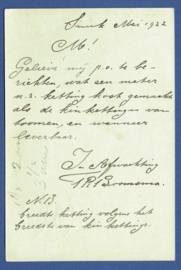 Sneek Mei 1922
M!
Gelieve mij p.o. te be-
richten, wat een meter
n.s. ketting kost gemaakt
als de kinkettingen van
toomen, en wanneer
leverbaar.
In Afwachting
N.B.
breedte ketting volgens het
breedste van kin kettinge.